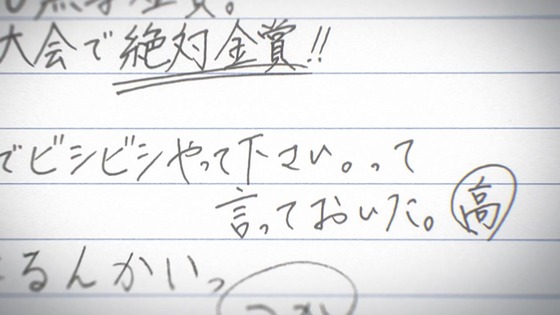 大会で絶対金賞!!
でビシビシやって下さい。って
言っておいた。高
るんかいっ